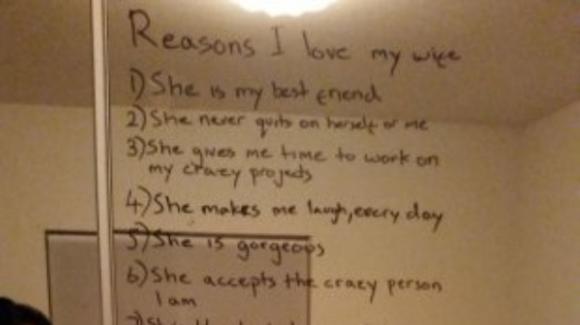 Reasons I love my wife
1) She is my best friend
2) She never quits on herself or me
3) She gives me time to work on
my crazy projects
4) She makes me laugh, every day
5) She is gorgeous
6) She accepts the crazy person
I am
7) She